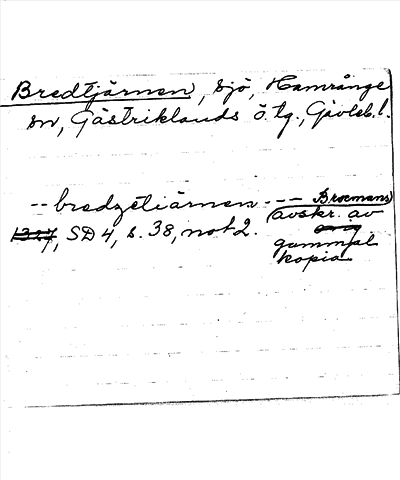 Bredtjärnen, sjö, Hamrånge
sn, Gästriklands ö. tg., Gävleb. l.
-- bredzetiærnen --- Brocmans
avskr. av
1327, SD 4, s. 38, not 2.
gammal
kopia